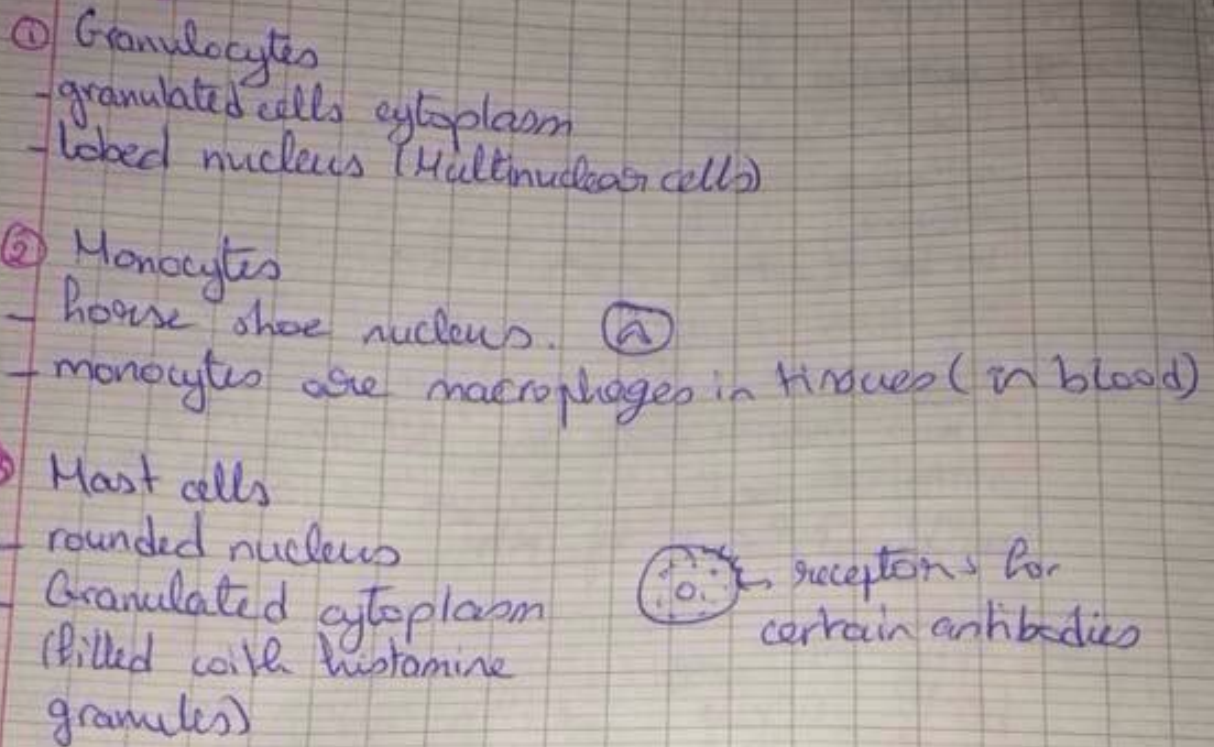 ① Granulocytes
- granulated cells cytoplasm
- lobed nucleus (Multinuclear cells)
② Monocytes
- horse shoe nucleus.
- monocytes are macrophages in tissues (in blood)
Mast cells
- rounded nucleus
- Granulated cytoplasm
(filled with histamine
granules)
receptors for
certain antibodies